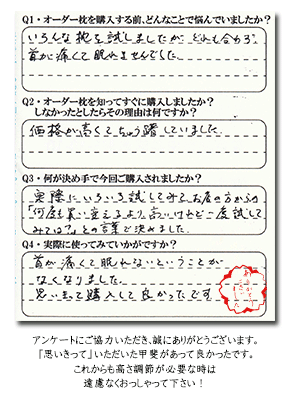 Q1・オーダー枕を購入する前、どんなことで悩んでいましたか?
いろんな枕を試しましたが どれも合わず
首が痛くて眠れませんでした。
Q2・オーダー枕を知ってすぐに購入しましたか?
しなかったとしたらその理由は何ですか?
価格が高くてちゅう躇していました。
Q3・何が決め手で今回ご購入されましたか?
実際にいろいろ試してみて、お店の方からの
「何度も買い立えるより、高いけれど一度試して
みては?」との言葉で決めました。
Q4・実際に使ってみていかがですか?
首が痛くて眠れないということが
なくなりました。
思い立って購入して良かったです。
アンケートにご協力いただき、誠にありがとうございます。
「思いきって」いただいた甲斐があって良かったです。
これからも高さ調節が必要な時は
遠慮なくおっしゃって下さい!